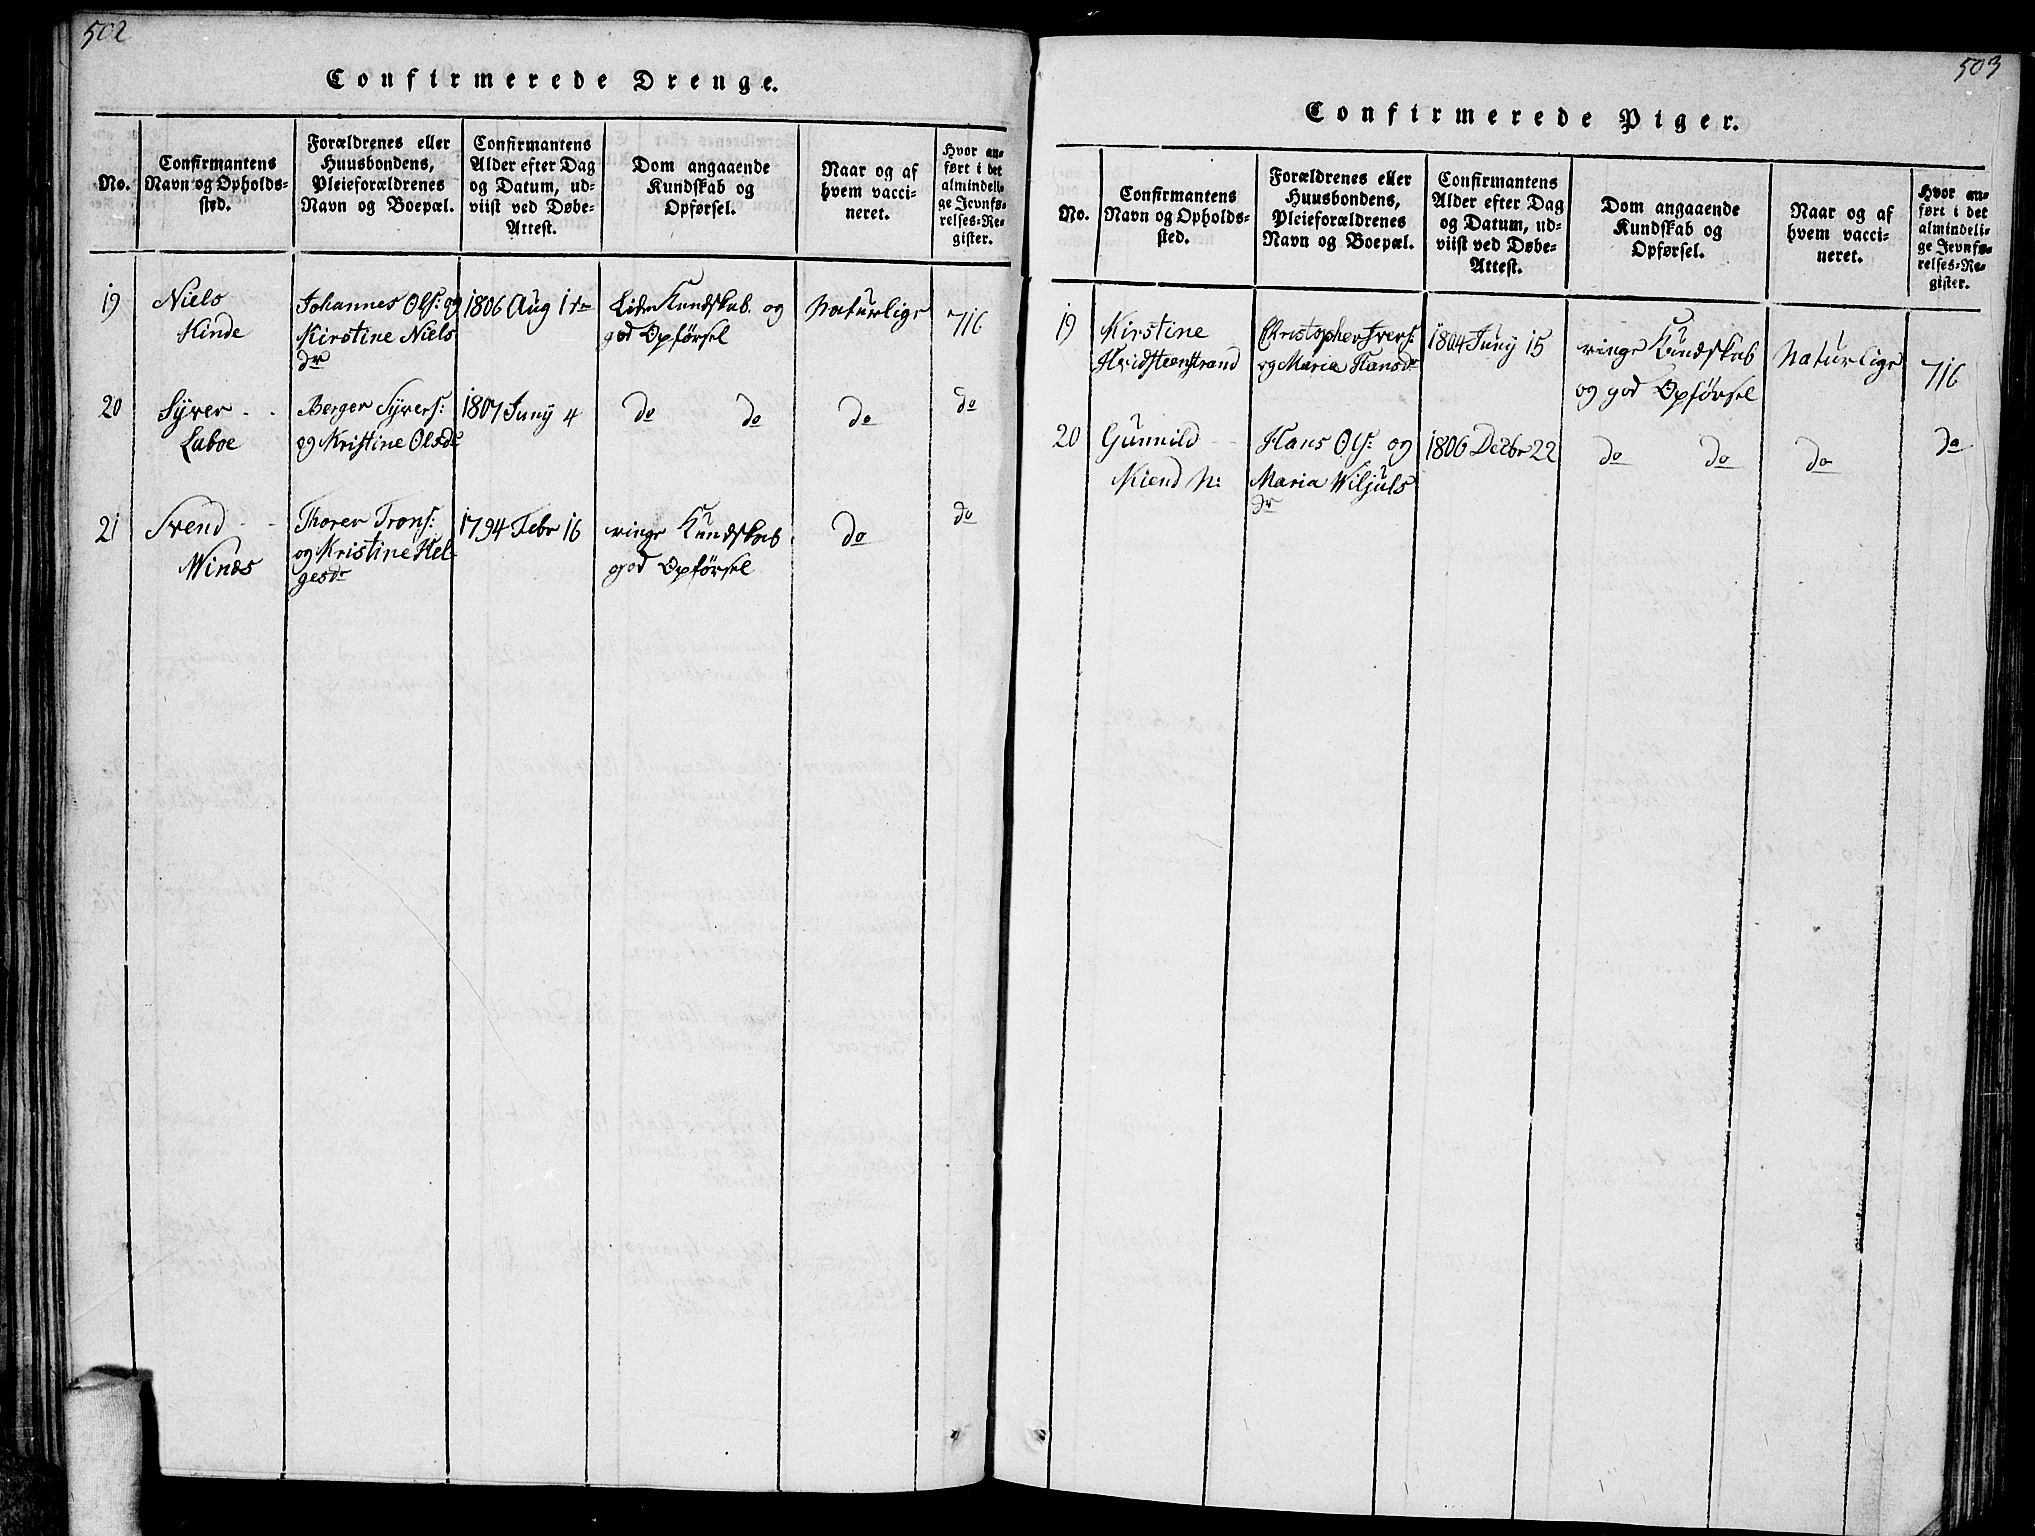 502
Confirmerede Drenge.
No.
Confirmantens
Navn og Opholds-
sted.
Forældrenes eller
Huusbondens,
Pleieforældrenes
Navn og Boepæl.
Confirmantens
Alder efter Dag
og Datum, ud-
viist ved Døbe-
Attest.
Dom angaaende
Kundskab og
Opførsel.
Naar og af
hvem vacci-
neret.
Hvor an-
ført i det
almindeli-
ge Jevnfø-
relses-Re-
gister.
19
Niels
Kinde
Johannes Ols: og
Kirstine Niels
dr
1806 Aug 1
Liden Kundskab og
god Opførsel
Naturlige
716
20
Syver - -
Laboe
Berger Syvers:
og Kristine Olsdr
1807 Juny 4
do do
do
do
21
Svend - -
Winæs
Thorer Trons:
og Kristine Hel-
gesdr
1794 Febr 16
ringe Kundskab
god Opførsel
do
do
503
Confirmerede Piger.
No.
Confirmantens
Navn og Opholds-
sted.
Forældrenes eller
Huusbondens,
Pleieforældrenes
Navn og Boepæl.
Confirmantens
Alder efter Dag
og Datum, ud-
viist ved Døbe-
Attest.
Dom angaaende
Kundskab og
Opførsel.
Naar og af
hvem vacci-
neret.
Hvor an-
ført i det
almindeli-
ge Jevnfø-
relses-Re-
gister.
19
Kirstine
Hvidsteenstrand
Christopher Ivers:
og Maria Hansdr
1804 Juny 15
ringe Kundskab
og god Opførsel
Naturlige
716
20
Gunnild - -
Kiend N:
Hans Ols: og
Maria Wiljuls
dr
1806 Decbr 22
do do
do
do